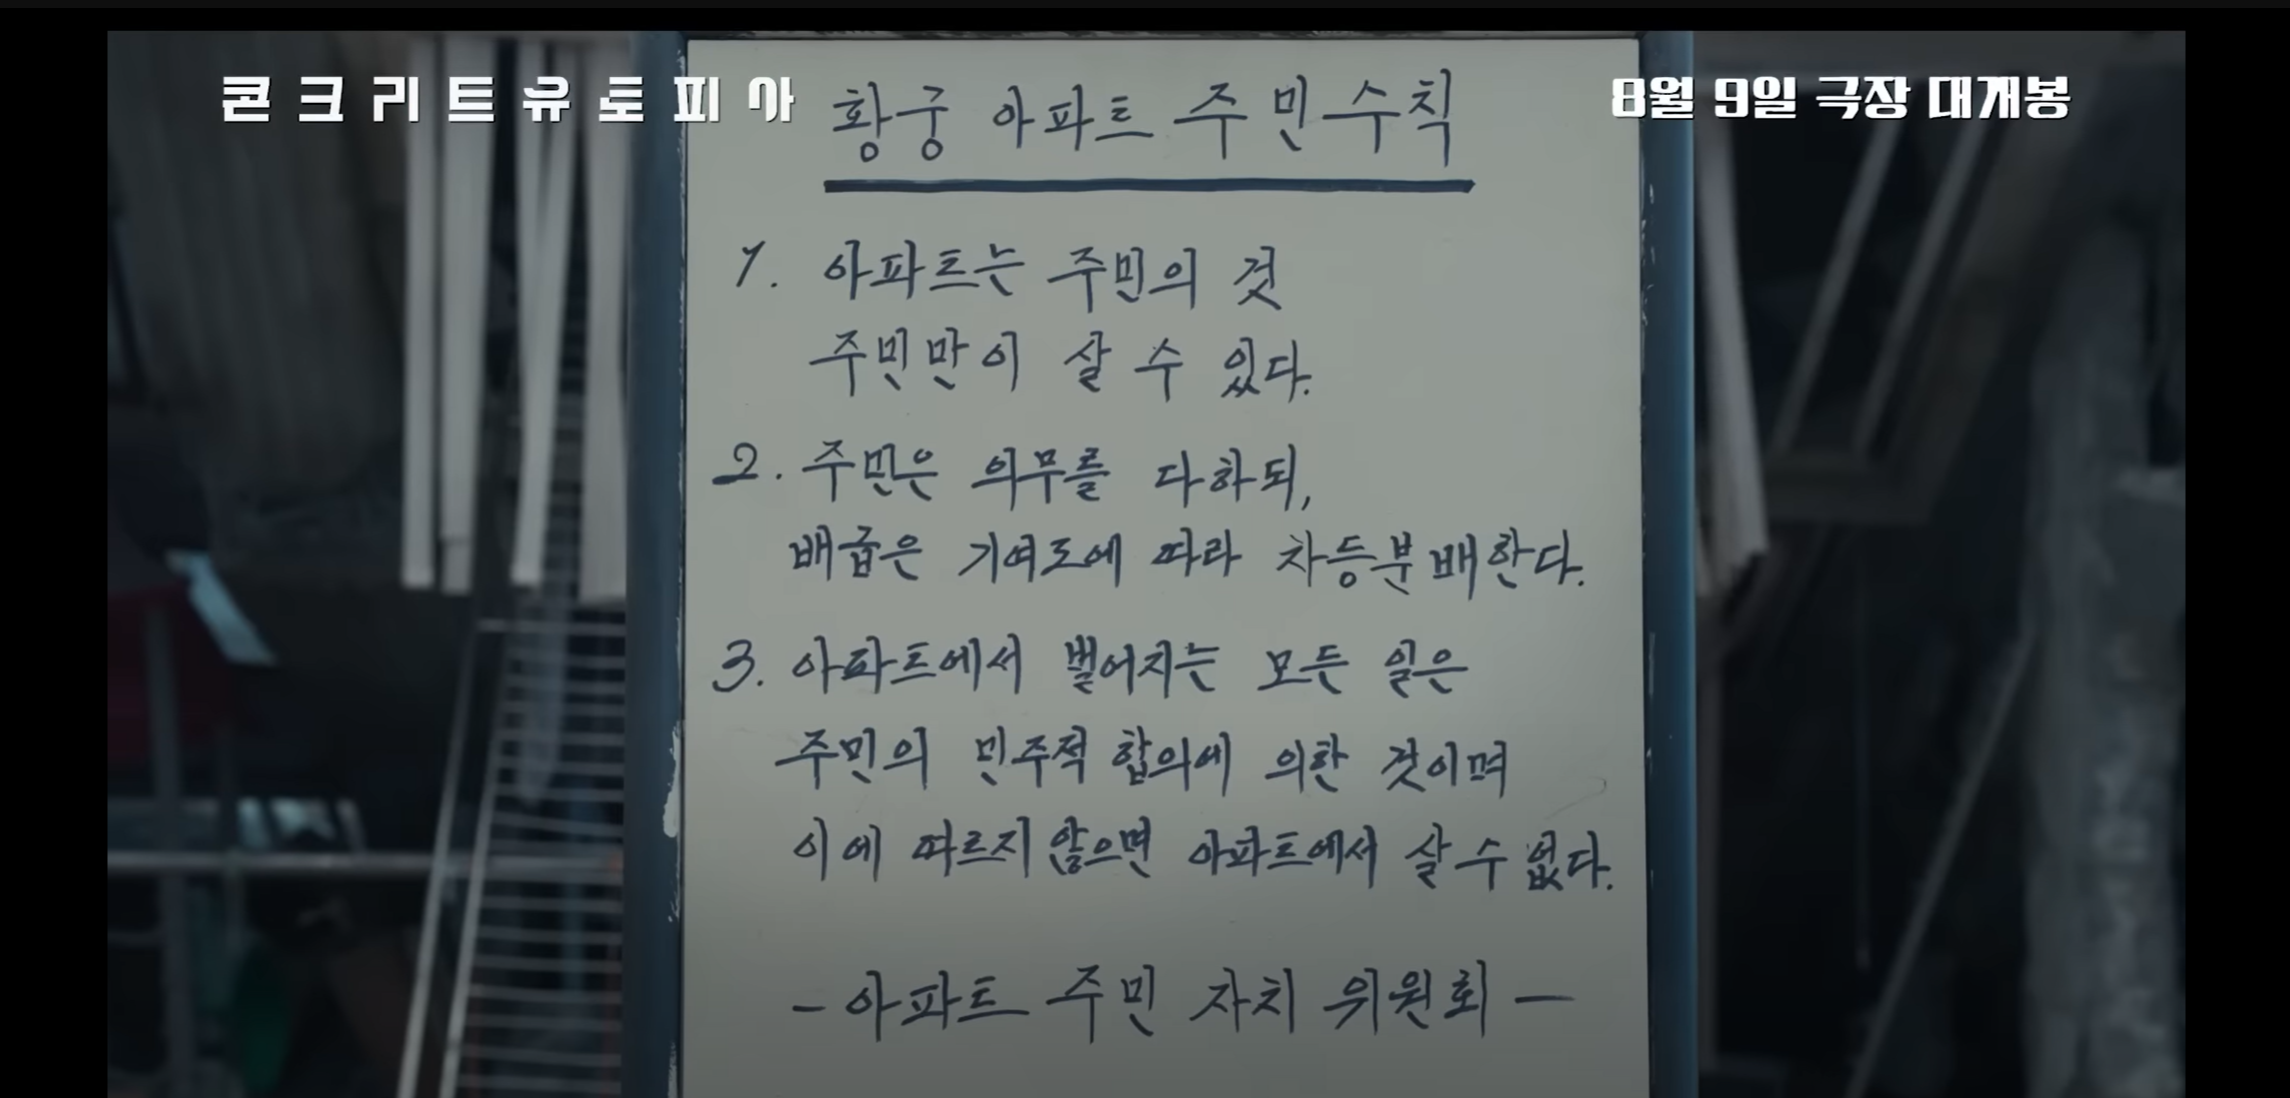 콘크리트유토피아
8월 9일 극장 대개봉
황궁 아파트 주민수칙
1. 아파트는 주민의 것
주민만이 살 수 있다.
2. 주민은 의무를 다하되,
배급은 기여도에 따라 차등분배한다.
3. 아파트에서 벌어지는 모든 일은
주민의 민주적 합의에 의한 것이며
이에 따르지 않으면 아파트에서 살 수 없다.
- 아파트 주민 자치 위원회 -